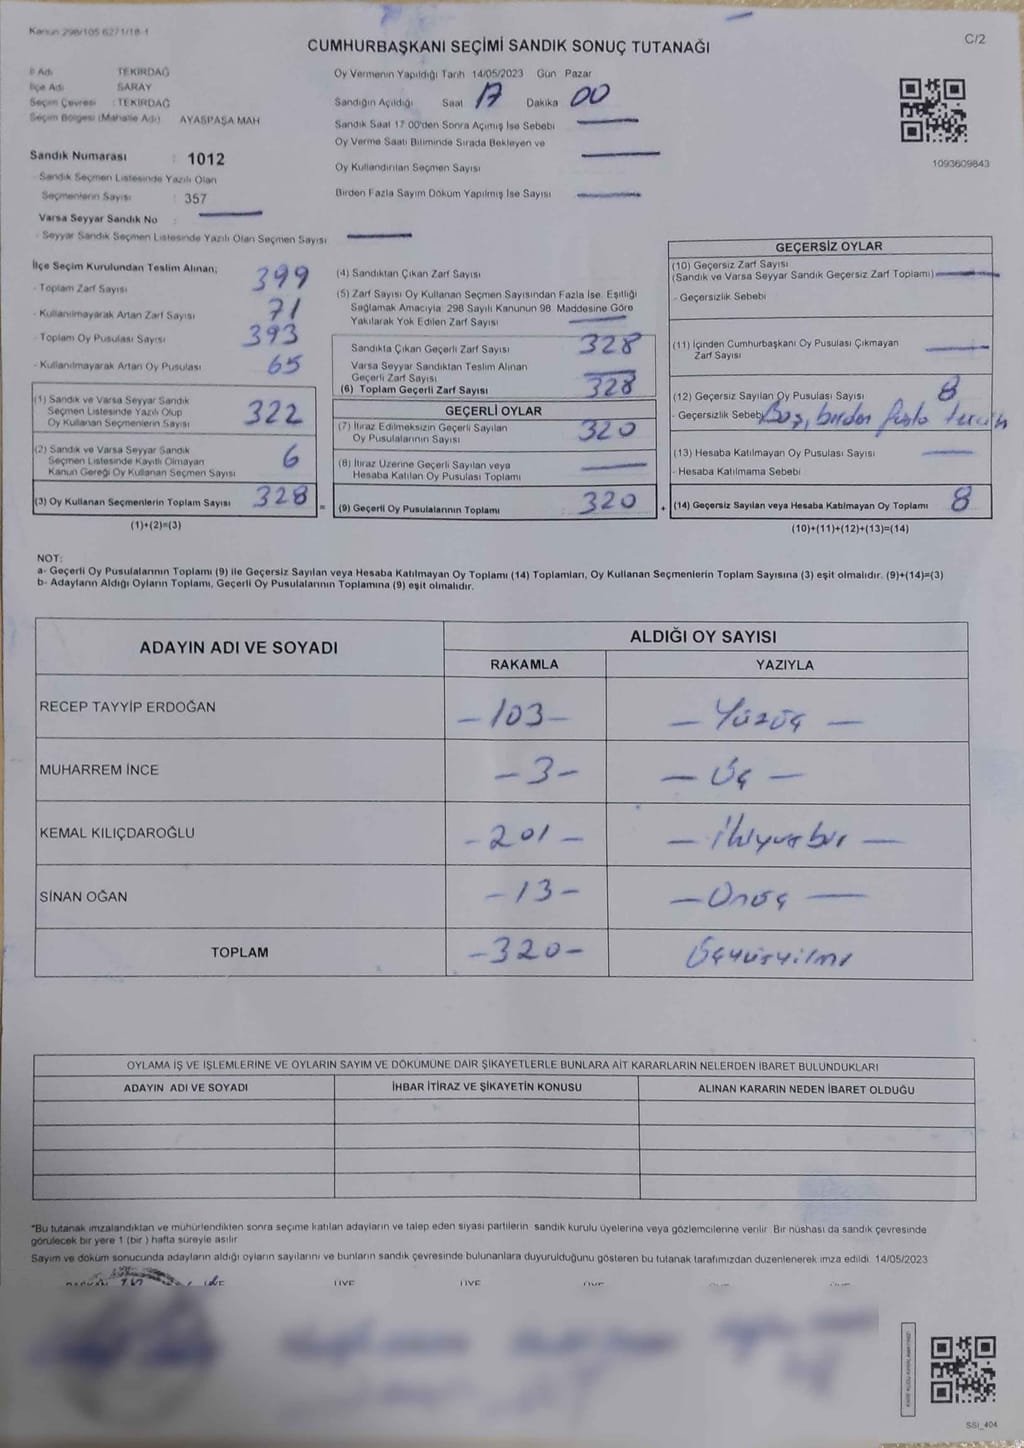 Kanun 298/105 6271/18-1
C/2
CUMHURBAŞKANI SEÇİMİ SANDIK SONUÇ TUTANAĞI
İl Adı TEKİRDAĞ
İlçe Adı SARAY
Seçim Çevresi : TEKİRDAĞ
Seçim Bölgesi (Mahalle Adı) AYASPAŞA MAH
Sandık Numarası : 1012
Sandık Seçmen Listesinde Yazılı Olan
Seçmenlerin Sayısı : 357
Varsa Seyyar Sandık No :
Seyyar Sandık Seçmen Listesinde Yazılı Olan Seçmen Sayısı
Oy Vermenin Yapıldığı Tarih 14/05/2023 Gün Pazar
Sandığın Açıldığı Saat 17 Dakika 00
Sandık Saat 17 00'den Sonra Açımış İse Sebebi
Oy Verme Saati Bitiminde Sırada Bekleyen ve
Oy Kullandırılan Seçmen Sayısı
Birden Fazla Sayım Döküm Yapılmış İse Sayısı
1093609843
İlçe Seçim Kurulundan Teslim Alınan;
- Toplam Zarf Sayısı 399
- Kullanılmayarak Artan Zarf Sayısı 71
- Toplam Oy Pusulası Sayısı 393
- Kullanılmayarak Artan Oy Pusulası 65
(1) Sandık ve Varsa Seyyar Sandık
Seçmen Listesinde Yazılı Olup
Oy Kullanan Seçmenlerin Sayısı 322
(2) Sandık ve Varsa Seyyar Sandık
Seçmen Listesinde Kayıtlı Olmayan
Kanun Gereği Oy Kullanan Seçmen Sayısı 6
(3) Oy Kullanan Seçmenlerin Toplam Sayısı 328
(1)+(2)=(3)
=
(4) Sandıktan Çıkan Zarf Sayısı
(5) Zarf Sayısı Oy Kullanan Seçmen Sayısından Fazla İse, Eşitliği
Sağlamak Amacıyla 298 Sayılı Kanunun 98. Maddesine Göre
Yakılarak Yok Edilen Zarf Sayısı
Sandıkta Çıkan Geçerli Zarf Sayısı 328
Varsa Seyyar Sandıktan Teslim Alınan
Geçerli Zarf Sayısı
(6) Toplam Geçerli Zarf Sayısı 328
GEÇERLİ OYLAR
(7) İtiraz Edilmeksizin Geçerli Sayılan
Oy Pusulalarının Sayısı 320
(8) İtiraz Üzerine Geçerli Sayılan veya
Hesaba Katılan Oy Pusulası Toplamı
(9) Geçerli Oy Pusulalarının Toplamı 320
+
GEÇERSİZ OYLAR
(10) Geçersiz Zarf Sayısı
(Sandık ve Varsa Seyyar Sandık Geçersiz Zarf Toplamı)
- Geçersizlik Sebebi
(11) İçinden Cumhurbaşkanı Oy Pusulası Çıkmayan
Zarf Sayısı
(12) Geçersiz Sayılan Oy Pusulası Sayısı 8
- Geçersizlik Sebebi Boş, birden fazla tercih
(13) Hesaba Katılmayan Oy Pusulası Sayısı
- Hesaba Katılmama Sebebi
(14) Geçersiz Sayılan veya Hesaba Katılmayan Oy Toplamı 8
(10)+(11)+(12)+(13)=(14)
NOT:
a- Geçerli Oy Pusulalarının Toplamı (9) ile Geçersiz Sayılan veya Hesaba Katılmayan Oy Toplamı (14) Toplamları, Oy Kullanan Seçmenlerin Toplam Sayısına (3) eşit olmalıdır. (9)+(14)=(3)
b- Adayların Aldığı Oyların Toplamı, Geçerli Oy Pusulalarının Toplamına (9) eşit olmalıdır.
ADAYIN ADI VE SOYADI
ALDIĞI OY SAYISI
RAKAMLA YAZIYLA
RECEP TAYYİP ERDOĞAN -103- - Yüzüç -
MUHARREM İNCE -3- - Üç -
KEMAL KILIÇDAROĞLU -201- - İkiyüzbir -
SİNAN OĞAN -13- - Onüç -
TOPLAM -320- Üçyüzyirmi
OYLAMA İŞ VE İŞLEMLERİNE VE OYLARIN SAYIM VE DÖKÜMÜNE DAİR ŞİKAYETLERLE BUNLARA AİT KARARLARIN NELERDEN İBARET BULUNDUKLARI
ADAYIN ADI VE SOYADI İHBAR İTİRAZ VE ŞİKAYETİN KONUSU ALINAN KARARIN NEDEN İBARET OLDUĞU
*Bu tutanak imzalandıktan ve mühürlendikten sonra seçime katılan adayların ve talep eden siyasi partilerin sandık kurulu üyelerine veya gözlemcilerine verilir. Bir nüshası da sandık çevresinde
görülecek bir yere 1 (bir) hafta süreyle asılır
Sayım ve döküm sonucunda adayların aldığı oyların sayılarını ve bunların sandık çevresinde bulunanlara duyurulduğunu gösteren bu tutanak tarafımızdan düzenlenerek imza edildi. 14/05/2023
SSI_404